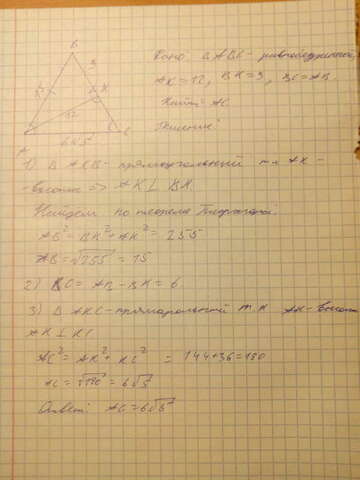 B
Дано: △ ABC - равнобедренный,
9
K
AK=12, BK=9, BC=AB.
Найти: AC
12
Решение:
C
6√5
A
1) △ AKB - прямоугольный т.к AK -
- высота => AK ⊥ BK
Найдем по теореме Пифагора:
AB² = BK² + AK² = 255
AB = √255 = 15
2) KC = AB - BK = 6
3) △ AKC - прямоугольный т.к AK - высота
AK ⊥ KC
AC² = AK² + KC² = 144+36=180
AC = √180 = 6√5
Ответ: AC = 6√5